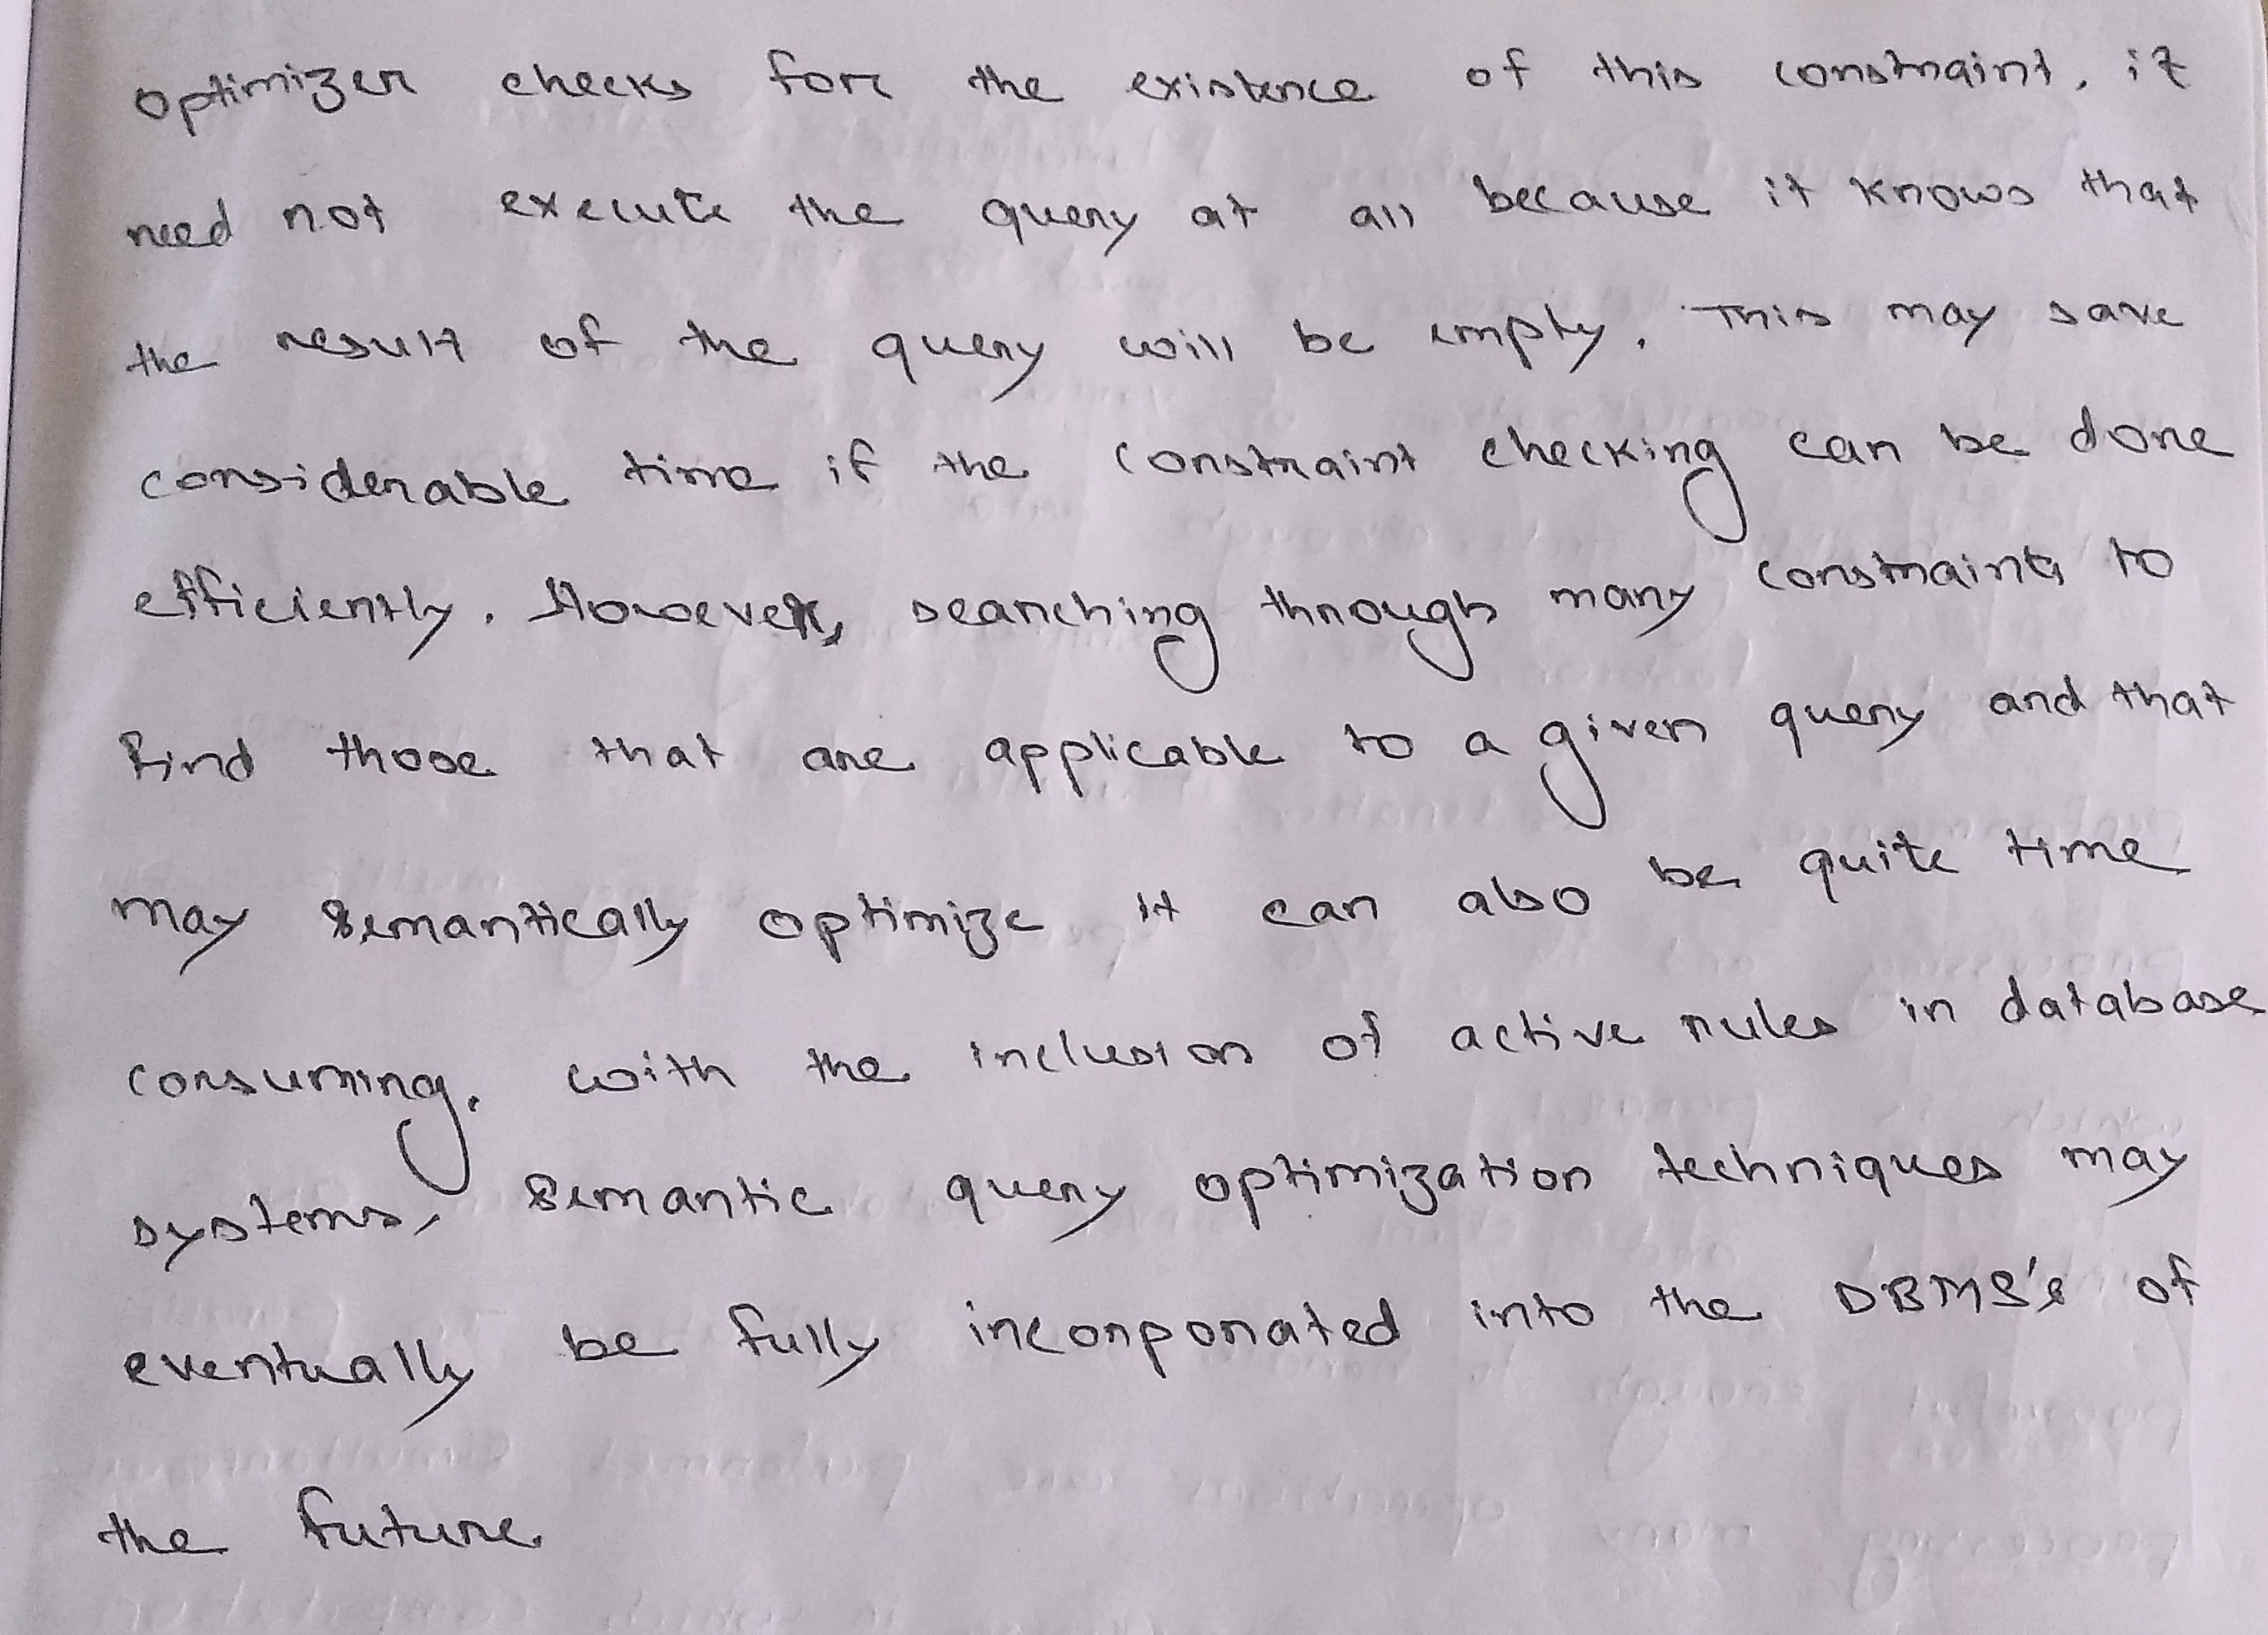 optimizer checks for the existence of this constraint, it
need not execute the query at all because it knows that
the result of the query will be empty. This may save
considerable time if the constraint checking can be done
efficiently. However, searching through many constraints to
find those that are applicable to a given query and that
may semantically optimize it can also be quite time
consuming. with the inclusion of active rules in database
systems, semantic query optimization techniques may
eventually be fully incorporated into the DBMS's of
the future